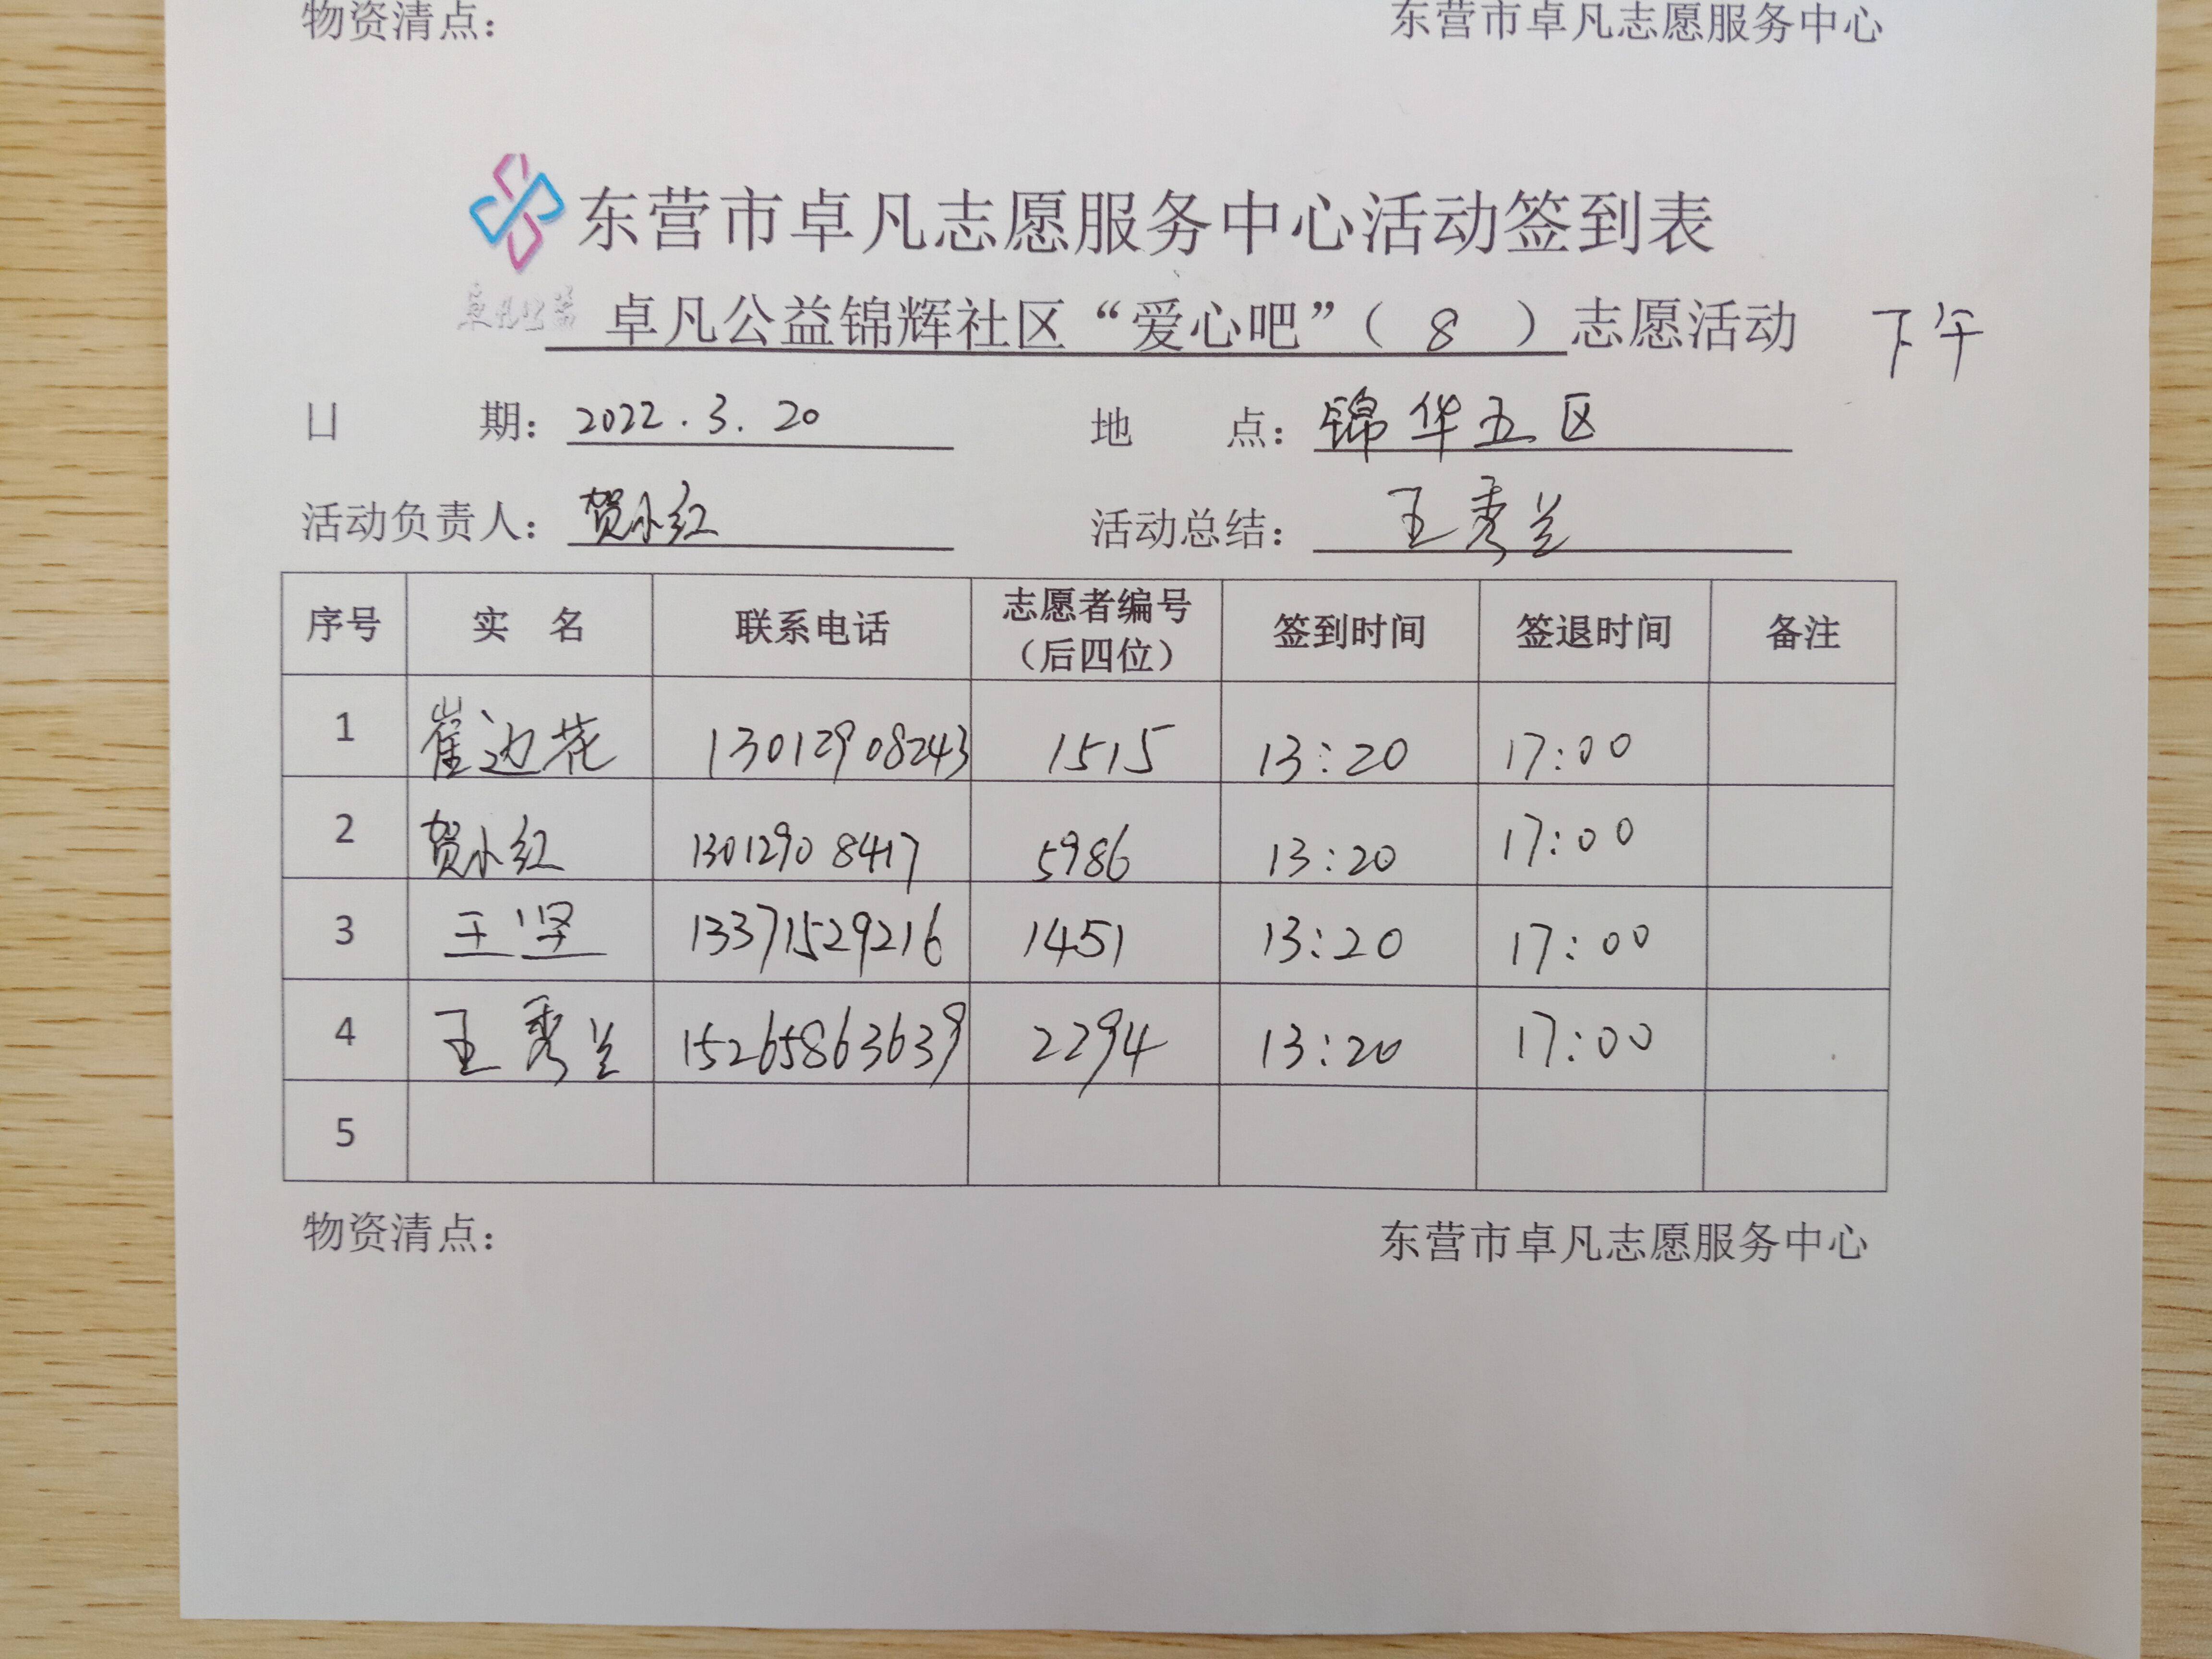 物资清点： 东营市卓凡志愿服务中心
东营市卓凡志愿服务中心活动签到表
卓凡公益 卓凡公益锦辉社区“爱心吧”（ 8 ）志愿活动 下午
日 期：2022.3.20 地 点：锦华五区
活动负责人：贺小红 活动总结：王秀兰
序号 实 名 联系电话 志愿者编号（后四位） 签到时间 签退时间 备注
1 崔边花 13012908243 1515 13:20 17:00
2 贺小红 13012908417 5986 13:20 17:00
3 王坚 13371529216 1451 13:20 17:00
4 王秀兰 15265863639 2294 13:20 17:00
5
物资清点： 东营市卓凡志愿服务中心